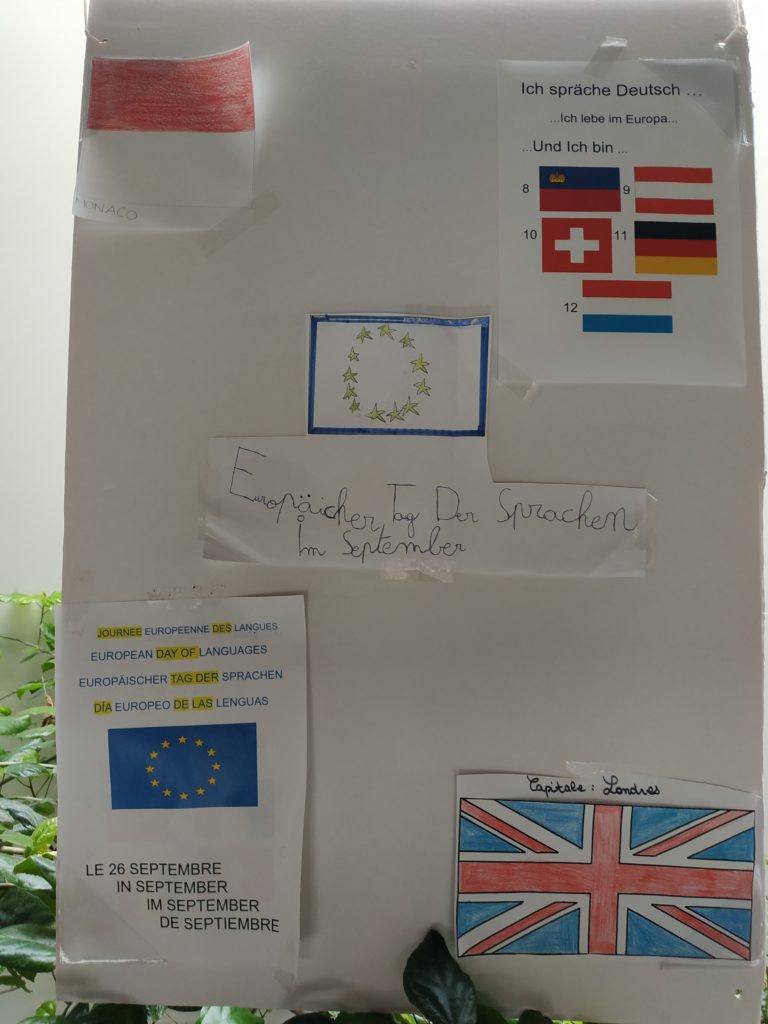 MONACO
Ich spräche Deutsch ...
...Ich lebe im Europa...
...Und Ich bin ...
8
9
10
11
12
Europäicher Tag Der Sprachen
Im September
JOURNEE EUROPEENNE DES LANGUES
EUROPEAN DAY OF LANGUAGES
EUROPÄISCHER TAG DER SPRACHEN
DÍA EUROPEO DE LAS LENGUAS
LE 26 SEPTEMBRE
IN SEPTEMBER
IM SEPTEMBER
DE SEPTIEMBRE
Capitale : Londres